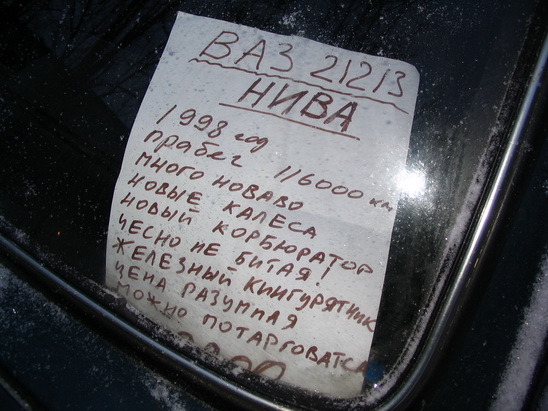 ВАЗ 21213
НИВА
1998 год
прабег 116000 км
много новаво
новые калеса
новый корбюратор
чесно не битая!
железный кингурятник
цена разумная
можно потарговатса